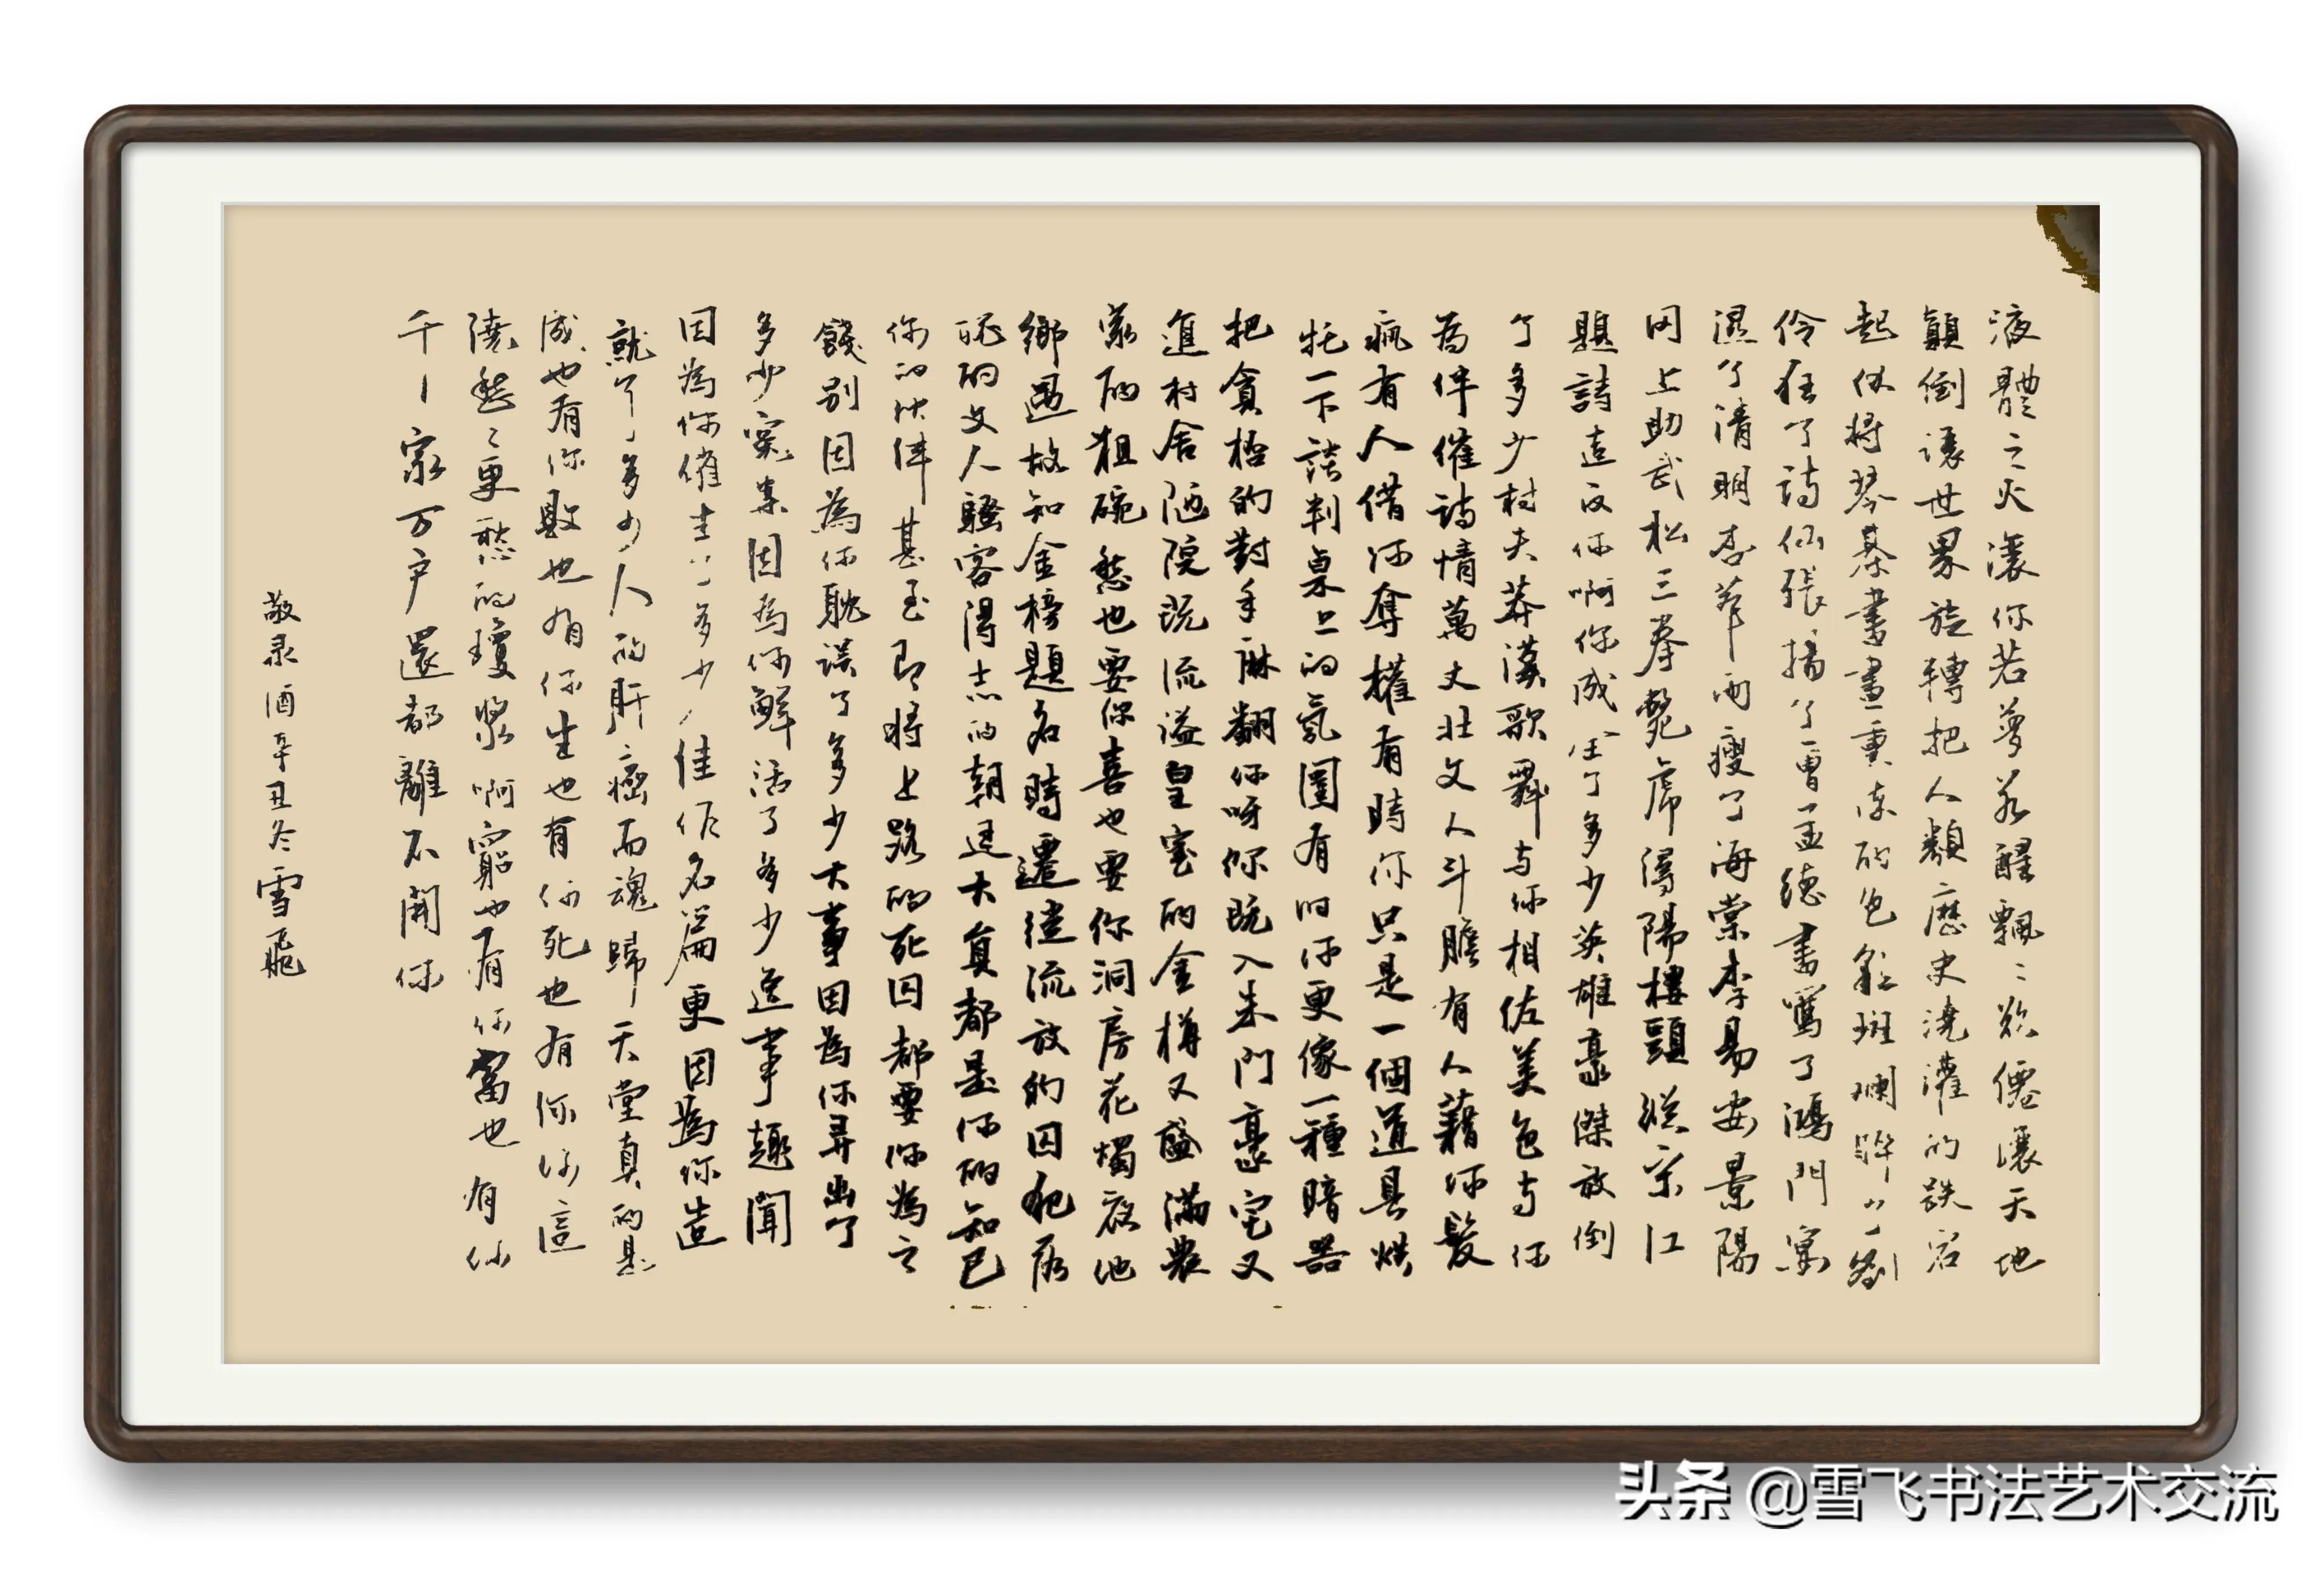 液體之火讓你若夢若醒飄々欲僊讓天地
顛倒讓世界旋轉把人類歷史澆灌的跌宕
起伏将琴棋書畫熏陶的色彩斑斓醉了劉
伶狂了詩仙張揚了曹孟德書寫了鴻門宴
濕了清明杏花雨瘦了海棠李易安景陽
冈上助武松三拳斃虎潯陽樓頭縱宋江
題詩造反你啊你成全了多少英雄豪傑放倒
了多少村夫莽漢歌舞与你相佐美色与你
為伴催詩情萬丈壯文人斗膽有人藉你發
瘋有人借你奪權有時你只是一個道具烘
托一下談判桌上的氛圍有时你更像一種暗器
把貪杯的對手麻翻你呀你既入朱門豪宅又
進村舍陋院既流溢皇室的金樽又盛滿農
家的粗碗愁也要你喜也要你洞房花燭夜他
鄉遇故知金榜題名時遷徙流放的囚犯落
魄的文人騷客得志的朝廷大員都是你的知已
你的伙伴甚至即將上路的死囚都要你為之
餞别因為你耽误了多少大事因為你弄出了
多少冤案因為你鮮活了多少逸事趣聞
因為你催生了多少佳作名篇更因為你造
就了多少人的肝癌而魂歸天堂真的是
成也有你敗也有你生也有你死也有你你這
澆愁々更愁的瓊漿啊窮也有你富也有你
千家万户還都離不開你
敬录酒辛丑冬雪飛
头条 @雪飞书法艺术交流